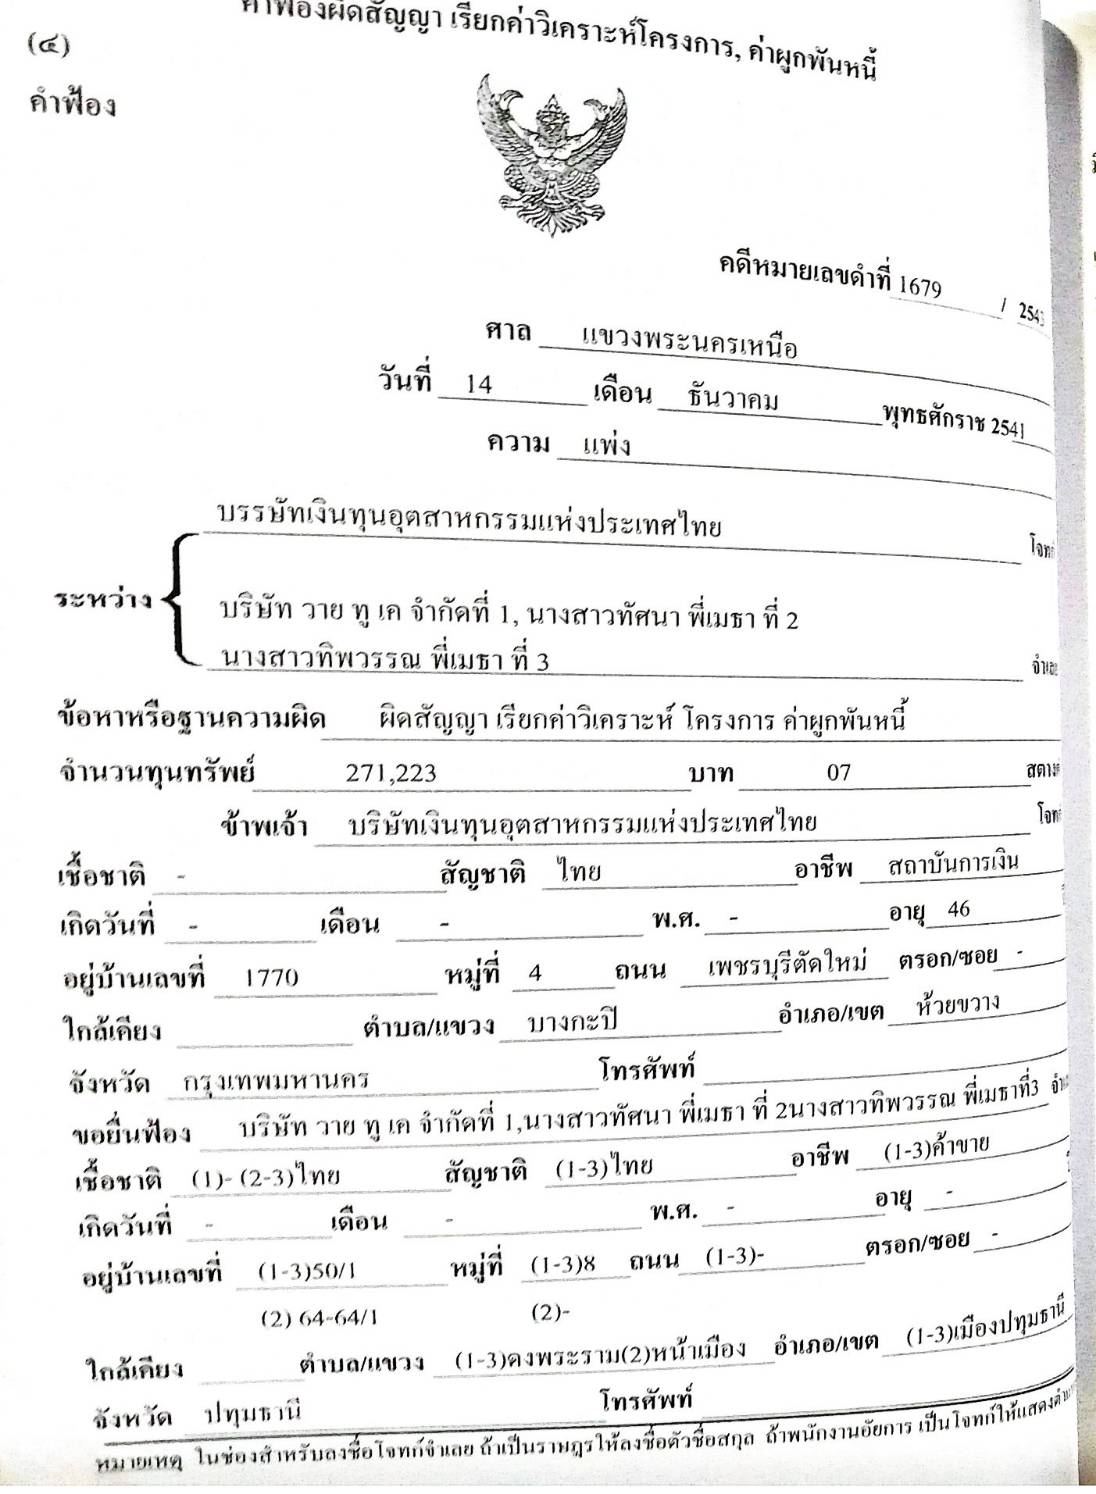 คำฟ้องผิดสัญญา เรียกค่าวิเคราะห์โครงการ, ค่าผูกพันหนี้
(๔)
คำฟ้อง
คดีหมายเลขดำที่ 1679 / 2543
ศาล แขวงพระนครเหนือ
วันที่ 14 เดือน ธันวาคม พุทธศักราช 2541
ความ แพ่ง
บรรษัทเงินทุนอุตสาหกรรมแห่งประเทศไทย โจทก์
ระหว่าง
บริษัท วาย ทู เค จำกัดที่ 1, นางสาวทัศนา พี่เมธา ที่ 2
นางสาวทิพวรรณ พี่เมธา ที่ 3 จำเลย
ข้อหาหรือฐานความผิด ผิดสัญญา เรียกค่าวิเคราะห์ โครงการ ค่าผูกพันหนี้
จำนวนทุนทรัพย์ 271,223 บาท 07 สตางค์
ข้าพเจ้า บริษัทเงินทุนอุตสาหกรรมแห่งประเทศไทย โจทก์
เชื้อชาติ - สัญชาติ ไทย อาชีพ สถาบันการเงิน
เกิดวันที่ - เดือน - พ.ศ. - อายุ 46
อยู่บ้านเลขที่ 1770 หมู่ที่ 4 ถนน เพชรบุรีตัดใหม่ ตรอก/ซอย -
ใกล้เคียง ตำบล/แขวง บางกะปิ อำเภอ/เขต ห้วยขวาง
จังหวัด กรุงเทพมหานคร โทรศัพท์
ขอยื่นฟ้อง บริษัท วาย ทู เค จำกัดที่ 1,นางสาวทัศนา พี่เมธา ที่ 2นางสาวทิพวรรณ พี่เมธาที่3
เชื้อชาติ (1)- (2-3)ไทย สัญชาติ (1-3)ไทย อาชีพ (1-3)ค้าขาย
เกิดวันที่ - เดือน - พ.ศ. - อายุ -
อยู่บ้านเลขที่ (1-3)50/1 หมู่ที่ (1-3)8 ถนน (1-3)- ตรอก/ซอย -
(2) 64-64/1 (2)-
ใกล้เคียง ตำบล/แขวง (1-3)ดงพระราม(2)หน้าเมือง อำเภอ/เขต (1-3)เมืองปทุมธานี
จังหวัด ปทุมธานี โทรศัพท์
หมายเหตุ ในช่องสำหรับลงชื่อโจทก์จำเลย ถ้าเป็นราษฎรให้ลงชื่อตัวชื่อสกุล ถ้าพนักงานอัยการ เป็นโจทก์ให้แสดง